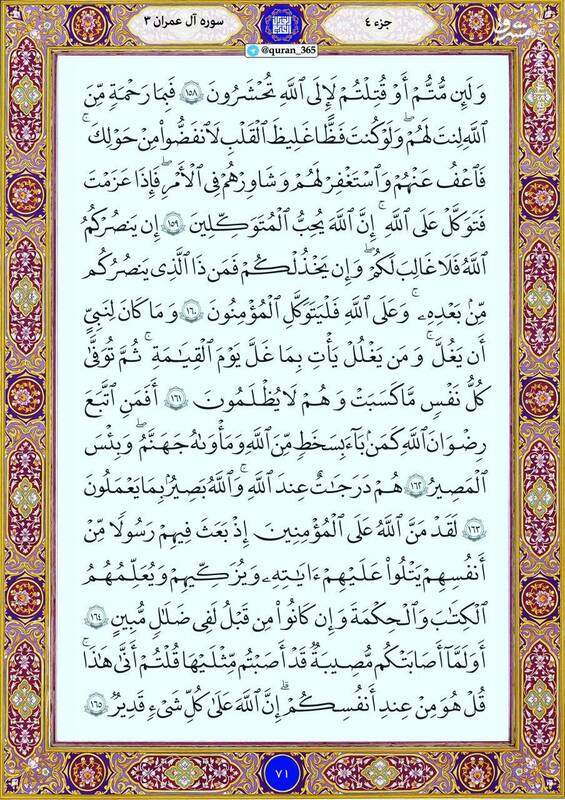 سوره آل عمران ۳
جزء ٤
@quran_365
وَلَئِن مُّتُّمْ أَوْ قُتِلْتُمْ لَإِلَى اللَّهِ تُحْشَرُونَ ١٥٨ فَبِمَا رَحْمَةٍ مِّنَ
اللَّهِ لِنتَ لَهُمْ ۖ وَلَوْ كُنتَ فَظًّا غَلِيظَ الْقَلْبِ لَانفَضُّوا مِنْ حَوْلِكَ ۖ
فَاعْفُ عَنْهُمْ وَاسْتَغْفِرْ لَهُمْ وَشَاوِرْهُمْ فِي الْأَمْرِ ۖ فَإِذَا عَزَمْتَ
فَتَوَكَّلْ عَلَى اللَّهِ ۚ إِنَّ اللَّهَ يُحِبُّ الْمُتَوَكِّلِينَ ١٥٩ إِن يَنصُرْكُمُ
اللَّهُ فَلَا غَالِبَ لَكُمْ ۖ وَإِن يَخْذُلْكُمْ فَمَن ذَا الَّذِي يَنصُرُكُم
مِّن بَعْدِهِ ۗ وَعَلَى اللَّهِ فَلْيَتَوَكَّلِ الْمُؤْمِنُونَ ١٦٠ وَمَا كَانَ لِنَبِيٍّ
أَن يَغُلَّ ۚ وَمَن يَغْلُلْ يَأْتِ بِمَا غَلَّ يَوْمَ الْقِيَامَةِ ۚ ثُمَّ تُوَفَّىٰ
كُلُّ نَفْسٍ مَّا كَسَبَتْ وَهُمْ لَا يُظْلَمُونَ ١٦١ أَفَمَنِ اتَّبَعَ
رِضْوَانَ اللَّهِ كَمَن بَاءَ بِسَخَطٍ مِّنَ اللَّهِ وَمَأْوَاهُ جَهَنَّمُ ۚ وَبِئْسَ
الْمَصِيرُ ١٦٢ هُمْ دَرَجَاتٌ عِندَ اللَّهِ ۗ وَاللَّهُ بَصِيرٌ بِمَا يَعْمَلُونَ
١٦٣ لَقَدْ مَنَّ اللَّهُ عَلَى الْمُؤْمِنِينَ إِذْ بَعَثَ فِيهِمْ رَسُولًا مِّنْ
أَنفُسِهِمْ يَتْلُوا عَلَيْهِمْ ءَايَاتِهِ وَيُزَكِّيهِمْ وَيُعَلِّمُهُمُ
الْكِتَابَ وَالْحِكْمَةَ وَإِن كَانُوا مِن قَبْلُ لَفِي ضَلَالٍ مُّبِينٍ ١٦٤
أَوَلَمَّا أَصَابَتْكُم مُّصِيبَةٌ قَدْ أَصَبْتُم مِّثْلَيْهَا قُلْتُمْ أَنَّىٰ هَٰذَا ۖ
قُلْ هُوَ مِنْ عِندِ أَنفُسِكُمْ ۗ إِنَّ اللَّهَ عَلَىٰ كُلِّ شَيْءٍ قَدِيرٌ ١٦٥
٧١